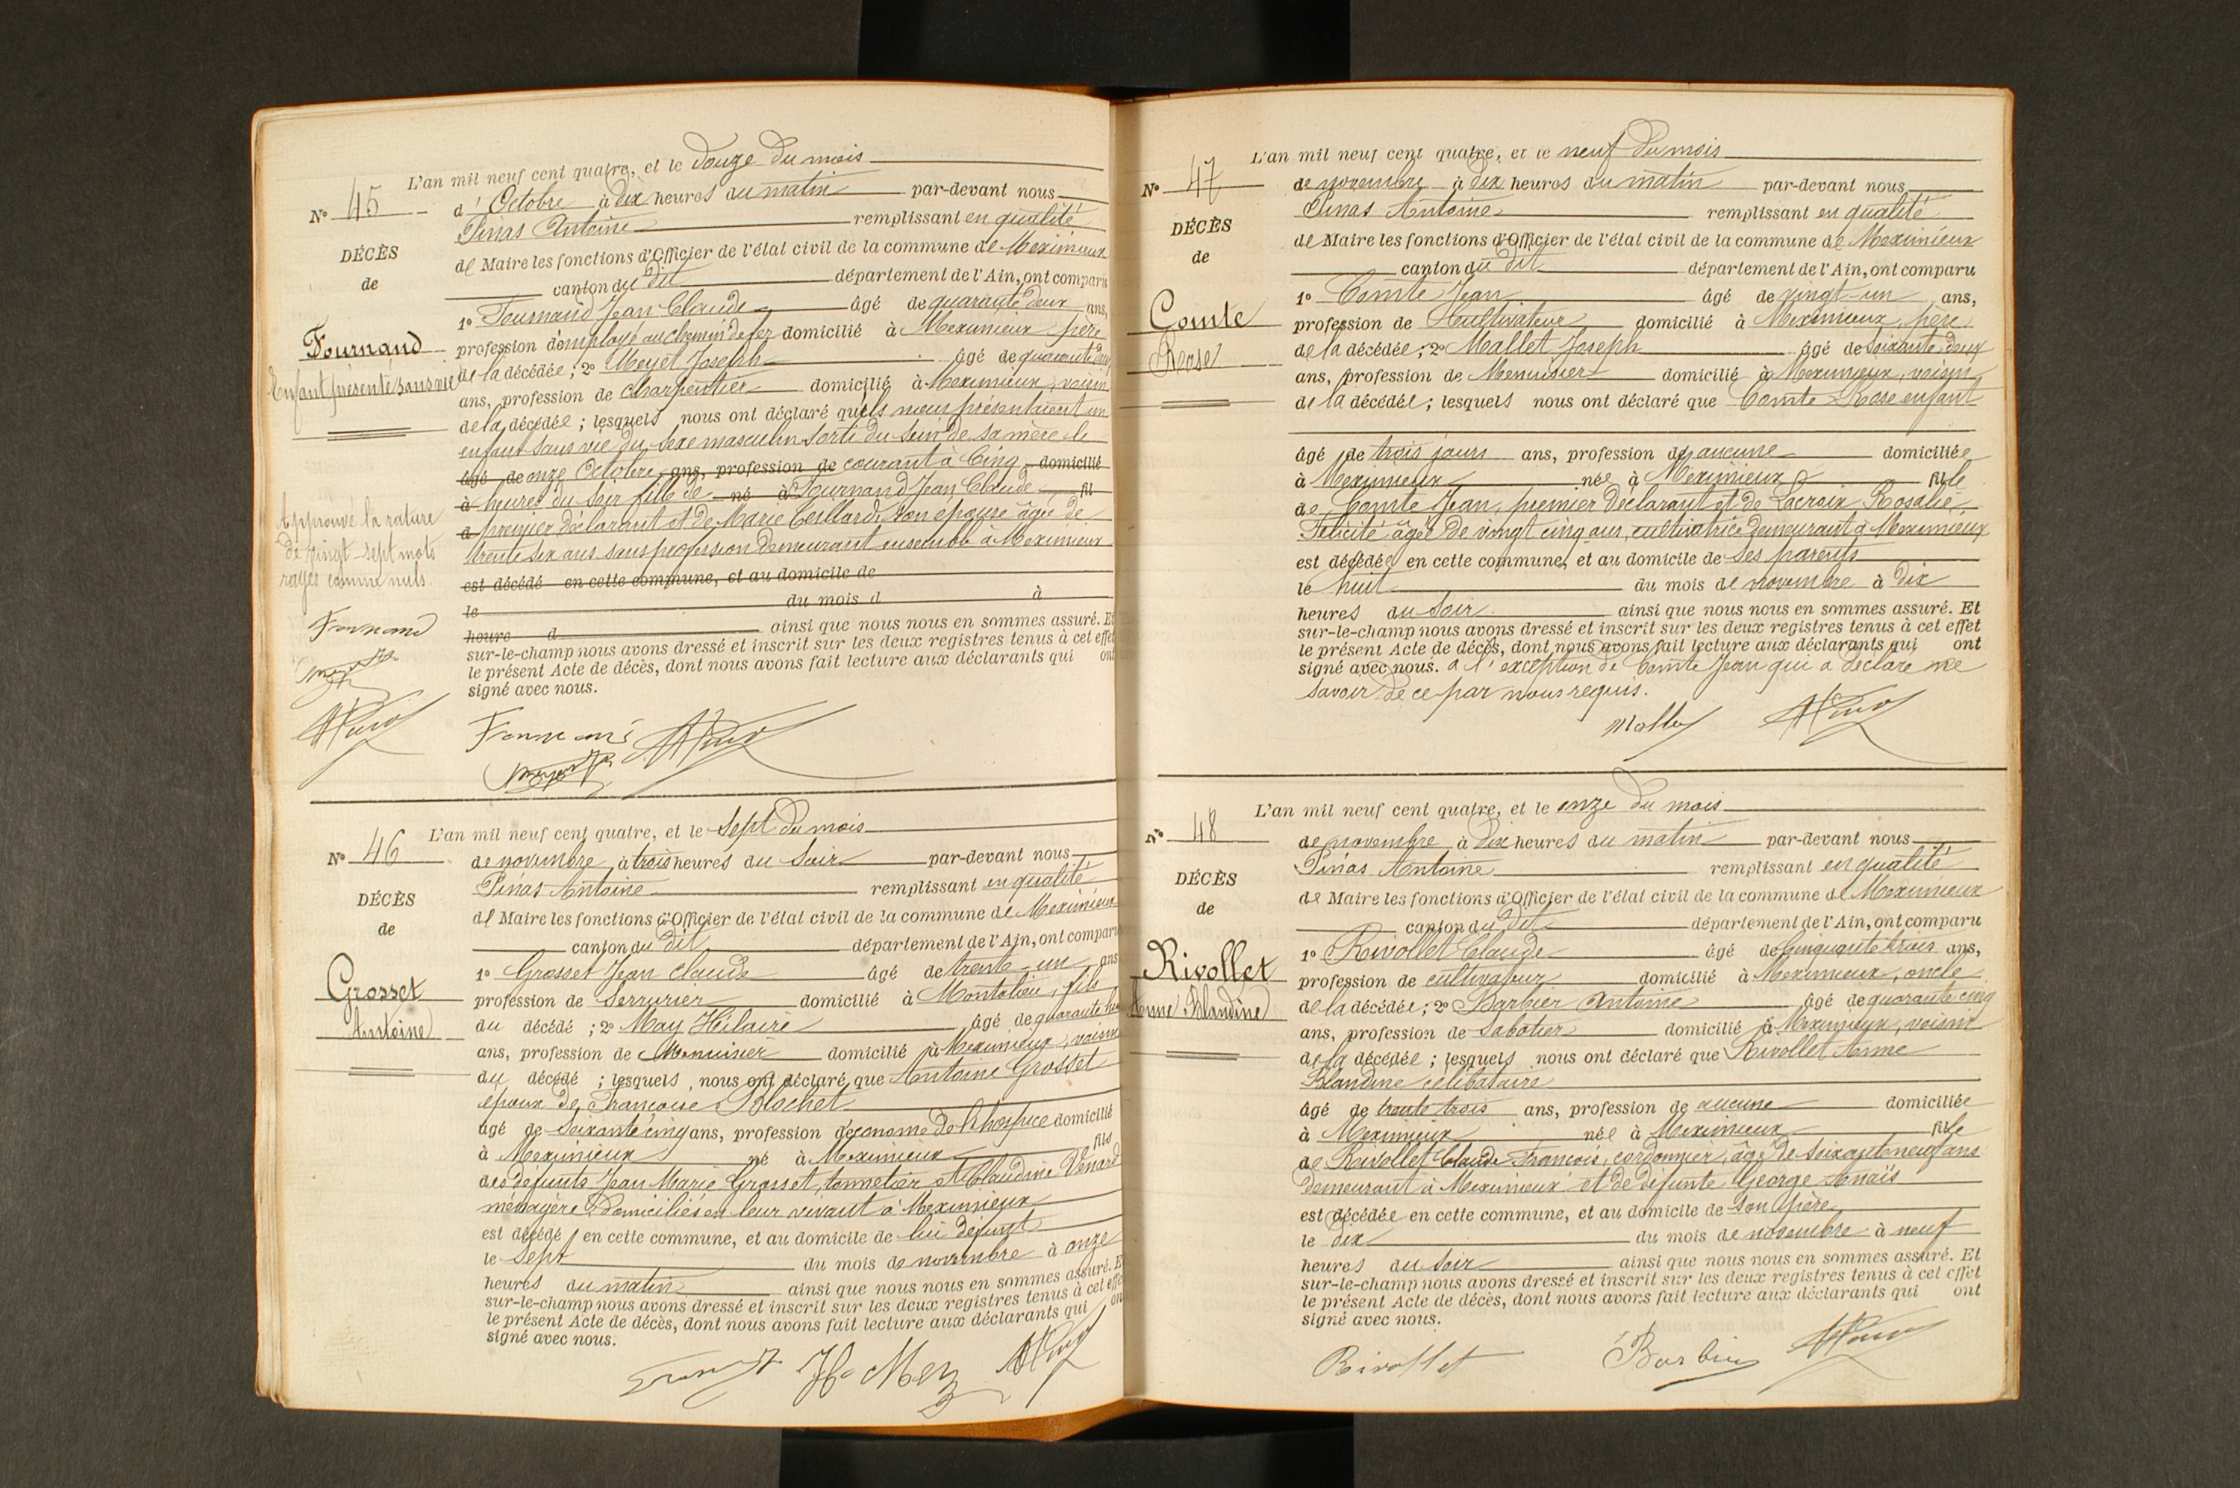 L'an mil neuf cent quatre, et le douze du mois
N° 45
d'Octobre à dix heures du matin par-devant nous
Pinas Antoine remplissant en qualité
DÉCÈS
de Maire les fonctions d'Officier de l'état civil de la commune de Meximieux
de
canton du dit département de l'Ain, ont comparu
1° Fournand Jean Claude âgé de quarante deux ans,
Fournand
profession d'employé au chemin de fer domicilié à Meximieux père
Enfant présenté sans vie
de la décédée ; 2° Joseph âgé de quarante
ans, profession de charpentier domicilié à Meximieux, voisin
de la décédée ; lesquels nous ont déclaré qu'ils nous présentaient un
enfant sans vie du sexe masculin sorti du sein de sa mère le
âgé de onze Octobre ans, profession de courant à Cinq domicilié
à heures du soir fils de né à Fournand Jean Claude fil
Approuvé la rature
d premier déclarant et de Marie son épouse âgée de
de vingt sept mots
trente six ans sans profession demeurant ensemble à Meximieux
rayés comme nuls
est décédé en cette commune, et au domicile de
le du mois d à
heure d ainsi que nous nous en sommes assuré. Et
Fournand
sur-le-champ nous avons dressé et inscrit sur les deux registres tenus à cet effet
le présent Acte de décès, dont nous avons fait lecture aux déclarants qui ont
signé avec nous.
Fournand
L'an mil neuf cent quatre, et le sept du mois
N° 46
de novembre à trois heures du soir par-devant nous
Pinas Antoine remplissant en qualité
DÉCÈS
de Maire les fonctions d'Officier de l'état civil de la commune de Meximieux
de
canton du dit département de l'Ain, ont comparu
1° Grosset Jean Claude âgé de trente un ans
Grosset
profession de Serrurier domicilié à fils
Antoine
du décédé ; 2° May Hilaire âgé de quarante
ans, profession de Menuisier domicilié à Meximieux, voisin
du décédé ; lesquels nous ont déclaré que Antoine Grosset
époux de Françoise Blachet
âgé de Soixante cinq ans, profession d'économe de l'hospice domicilié
à Meximieux né à Meximieux fils
des défunts Jean Marie Grosset, tonnelier et Claudine Venard
ménagère domiciliés en leur vivant à Meximieux
est décédé en cette commune, et au domicile de lui défunt
le Sept du mois de novembre à onze
heures du matin ainsi que nous nous en sommes assuré. Et
sur-le-champ nous avons dressé et inscrit sur les deux registres tenus à cet effet
le présent Acte de décès, dont nous avons fait lecture aux déclarants qui ont
signé avec nous.
L'an mil neuf cent quatre, et le neuf du mois
N° 47
de novembre à dix heures du matin par-devant nous
Pinas Antoine remplissant en qualité
DÉCÈS
de Maire les fonctions d'Officier de l'état civil de la commune de Meximieux
de
canton du dit département de l'Ain, ont comparu
1° Comte Jean âgé de vingt-un ans,
Comte
profession de Cultivateur domicilié à Meximieux, père
Rose
de la décédée ; 2° Mallet Joseph âgé de Soixante deux
ans, profession de Menuisier domicilié à Meximieux, voisin
de la décédée ; lesquels nous ont déclaré que Comte Rose enfant
âgé de trois jours ans, profession de aucune domiciliée
à Meximieux née à Meximieux fille
de Comte Jean, premier déclarant et de Lacroix Rosalie,
Félicité âgée de vingt cinq ans, cultivatrice demeurant à Meximieux
est décédée en cette commune, et au domicile de ses parents
le huit du mois de novembre à dix
heures du Soir ainsi que nous nous en sommes assuré. Et
sur-le-champ nous avons dressé et inscrit sur les deux registres tenus à cet effet
le présent Acte de décès, dont nous avons fait lecture aux déclarants qui ont
signé avec nous. à l'exception de Comte Jean qui a déclaré ne
savoir de ce par nous requis.
Mallet
L'an mil neuf cent quatre, et le onze du mois
N° 48
de novembre à Dix heures du matin par-devant nous
Pinas Antoine remplissant en qualité
DÉCÈS
de Maire les fonctions d'Officier de l'état civil de la commune de Meximieux
de
canton du dit département de l'Ain, ont comparu
1° Rivollet Claude âgé de Cinquante trois ans,
Rivollet
profession de cultivateur domicilié à Meximieux, oncle
Anne Blandine
de la décédée ; 2° Barbier Antoine âgé de quarante cinq
ans, profession de Sabotier domicilié à Meximieux, voisin
de la décédée ; lesquels nous ont déclaré que Rivollet Anne
Blandine célibataire
âgé de trente trois ans, profession de aucune domiciliée
à Meximieux née à Meximieux fille
de Rivollet Claude François, cordonnier, âgé de soixante neuf ans
demeurant à Meximieux et de défunte George Anaïs
est décédée en cette commune, et au domicile de son père
le dix du mois de novembre à neuf
heures du Soir ainsi que nous nous en sommes assuré. Et
sur-le-champ nous avons dressé et inscrit sur les deux registres tenus à cet effet
le présent Acte de décès, dont nous avons fait lecture aux déclarants qui ont
signé avec nous.
Rivollet Barbier